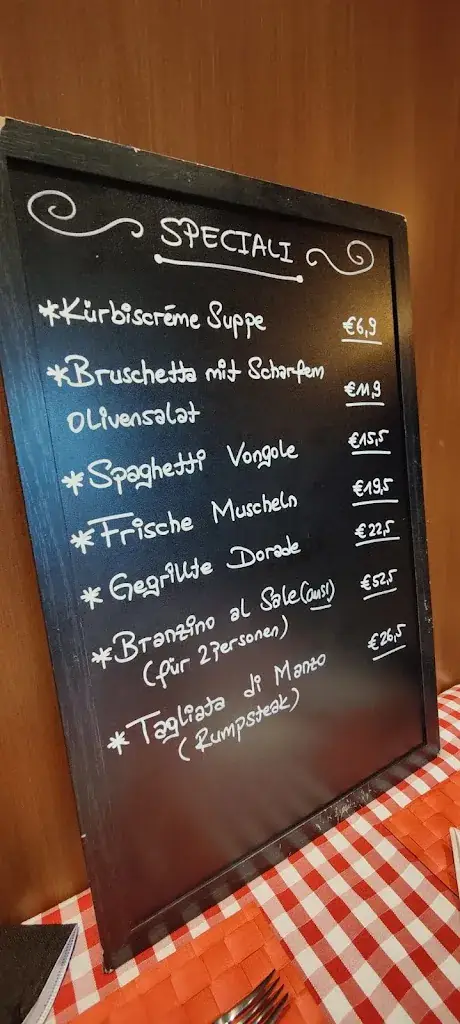 SPECIALI
*Kürbiscréme Suppe €6,9
*Bruschetta mit Scharfem €11,9
Olivensalat
*Spaghetti Vongole €15,5
*Frische Muscheln €19,5
*Gegrillte Dorade €22,5
*Branzino al Sale (aus!) €52,5
(für 2 Personen)
*Tagliata di Manzo €26,5
(Rumpsteak)